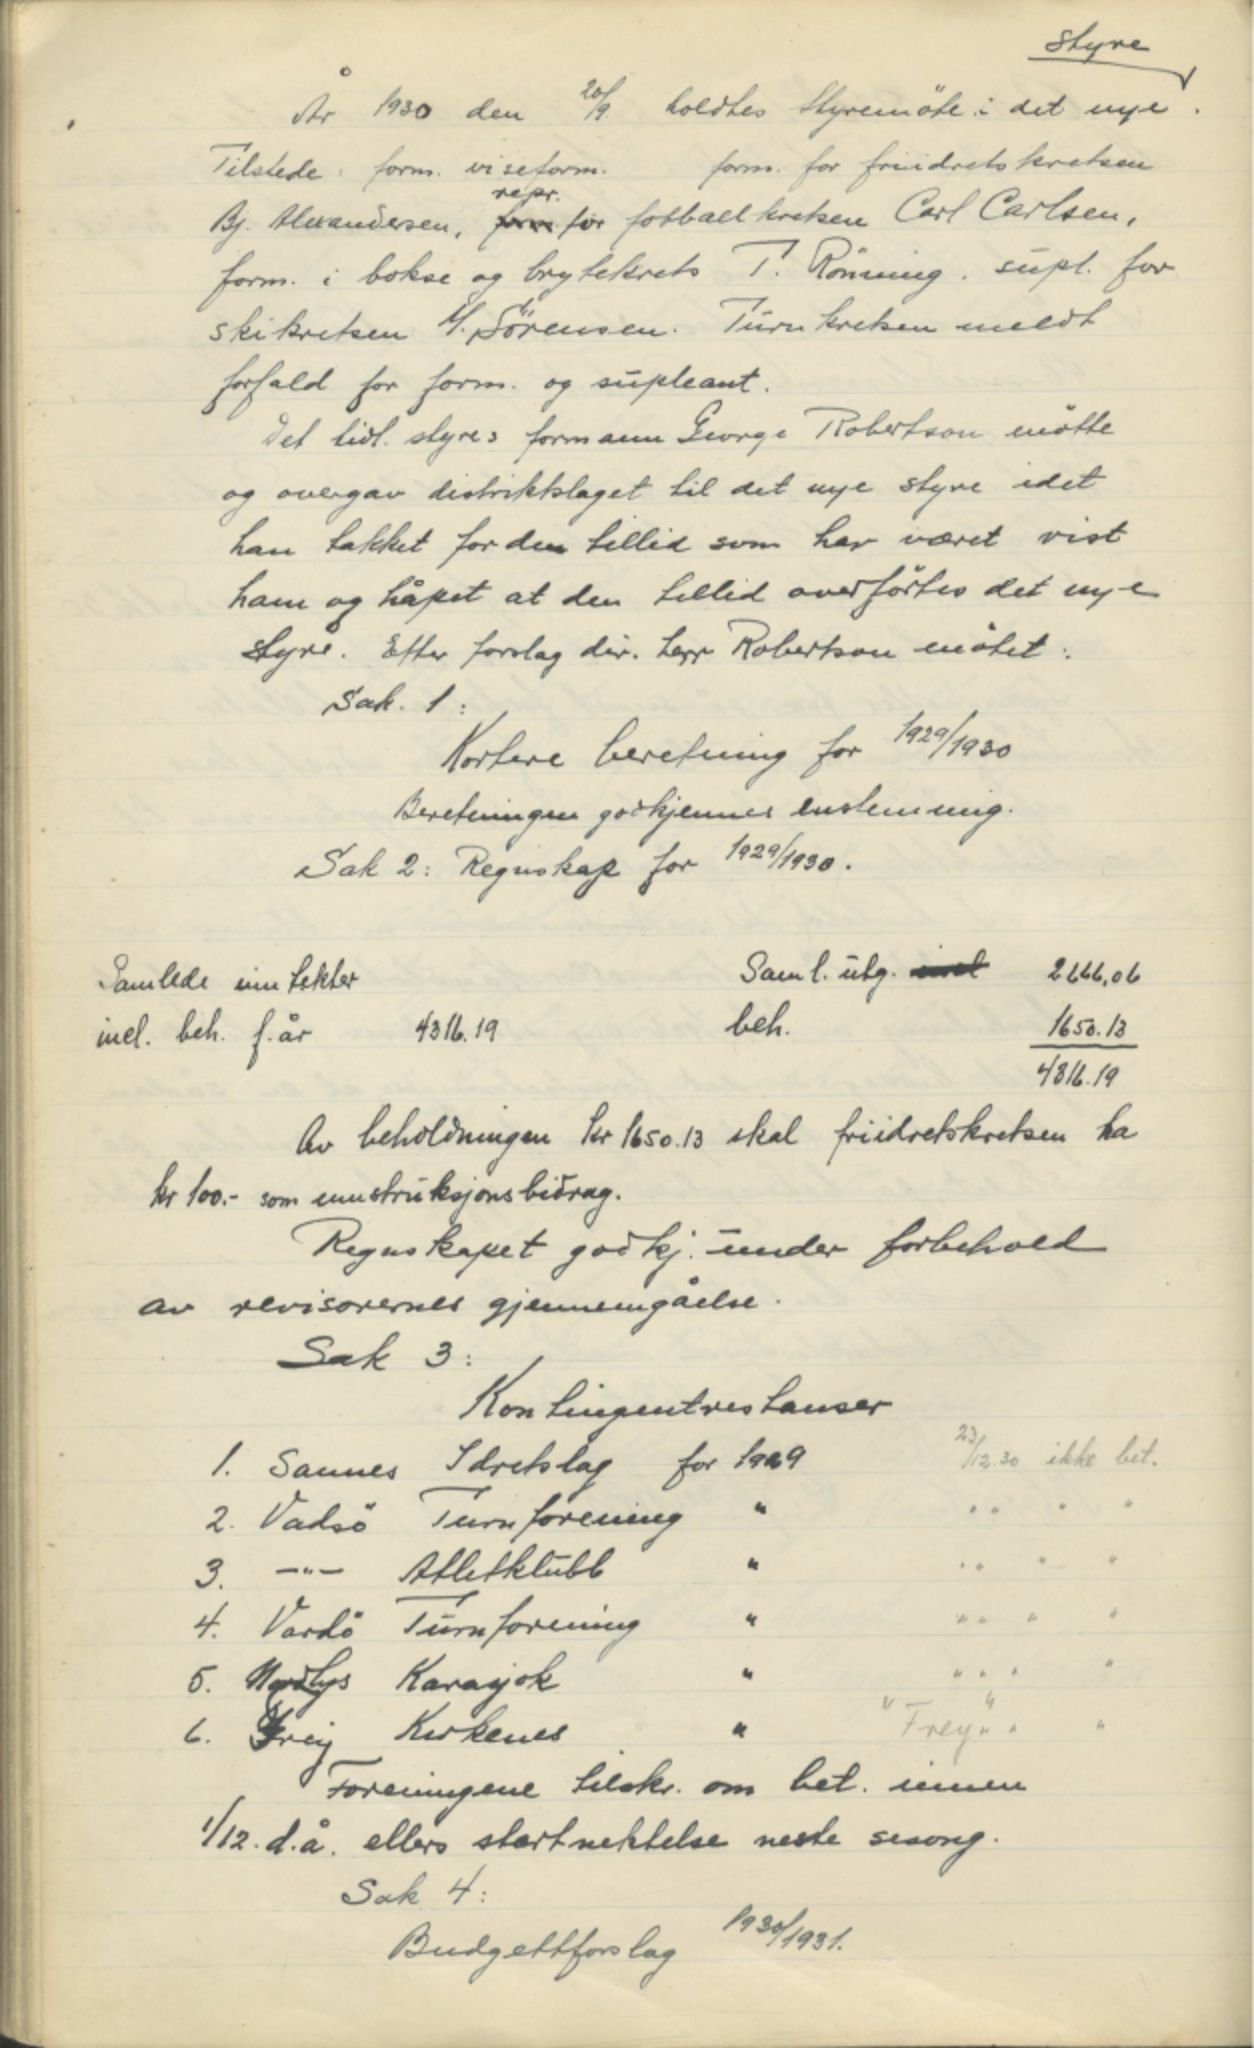 styre
År 1930 den 20/9 holdtes styremöte i det nye.
Tilstede: form. viseform. form. for friidretskretsen
repr.
Bj. Alexandersen, form for fotballkretsen Carl Carlsen,
form. i bokse og brytekrets T. Rönning. supl. for
skikretsen Sörensen. Turnkretsen meldt
forfald for form. og supleant.
Det tidl. styres formann George Robertson mötte
og overgav distriktslaget til det nye styre idet
han takket for den tillid som har været vist
ham og håpet at den tillid overförtes det nye
styre. Efter forslag dir. herr Robertson mötet:
Sak. 1:
Kortere beretning for 1929/1930
Beretningen godkjennes enstemmig.
Sak 2: Regnskap for 1929/1930.
Samlede inntekter Saml. utg. incl 2666,06
incl. beh. f. år 4316.19 beh. 1650.13
4316.19
Av beholdningen kr 1650.13 skal friidretskretsen ha
kr 100.- som innstruksjonsbidrag.
Regnskapet godkj. under forbehold
av revisorernes gjennemgåelse.
Sak 3:
Kontingentrestanser
1. Sannes Idretslag for 1929 23/12.30 ikke bet.
2. Vadsö Turnforening " " " " "
3. -"- Atletklubb " " " " "
4. Vardö Turnforening " " " " "
5. Nordlys Karasjok " " " " "
6. Freij Kirkenes " "Frey" " " "
Foreningene tilskr. om bet. innen
1/12. d.å. ellers startnektelse neste sesong.
Sak 4:
Budgettforslag 1930/1931.